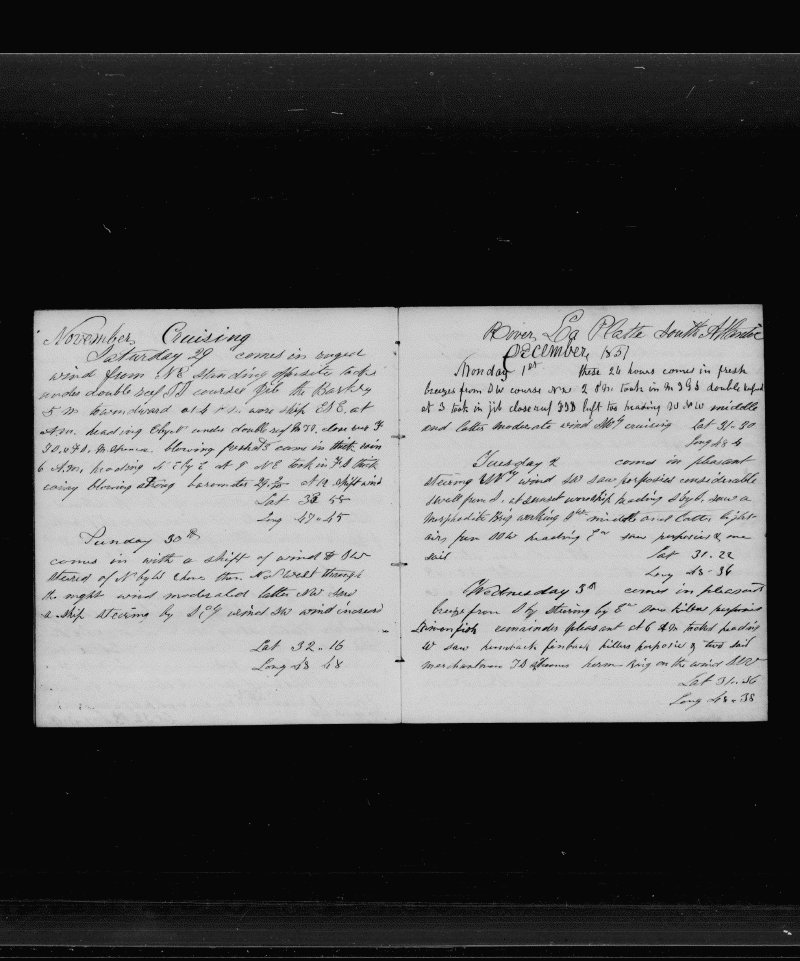 November Cruising
Saturday 29 comes in rugged
wind from NE standing opposite tacks
under double reef courses jib the Bark
5 m to windward at 4 P.m. wore ship ESE, at
A.m. heading under double reef close reef
blowing fresh came in thick rain
6 A.m, heading N E by E at 9 NE took in thick
rainy blowing strong barometer shift wind
Lat 32 55
Long 47 - 45
Sunday 30th
comes in with a shift of wind to SW
steered of N by W then NW West through
the night wind moderated latter NW saw
a ship steering by wind SW wind increas
Lat 32 - 16
Long 48 48
River La Platte South Atlantic
December, 1851
Monday 1st these 24 hours comes in fresh
breezes from SW course NW 2 P.m took in double reefed
at 3 took in jib close reef left too heading W N W middle
and latter moderate wind cruising Lat 31 - 30
Long 48 - 4
Tuesday 2 comes in pleasant
steering wind SW saw porpoises considerable
swell from S. at sunset wore ship heading S by W. saw a
Morphodite Brig working middle and latter light
airs from SSW heading saw porpoises & one
sail Lat 31 - 22
Long 48 - 36
Wednesday 3d comes in pleasant
breeze from S by steering by saw killers porpoises
remainder pleasant at 6 A.m tacked heading
W saw humpback finback killers porpoises & two sail
merchantmen on the wind
Lat 31 - 36
Long 48 - 38